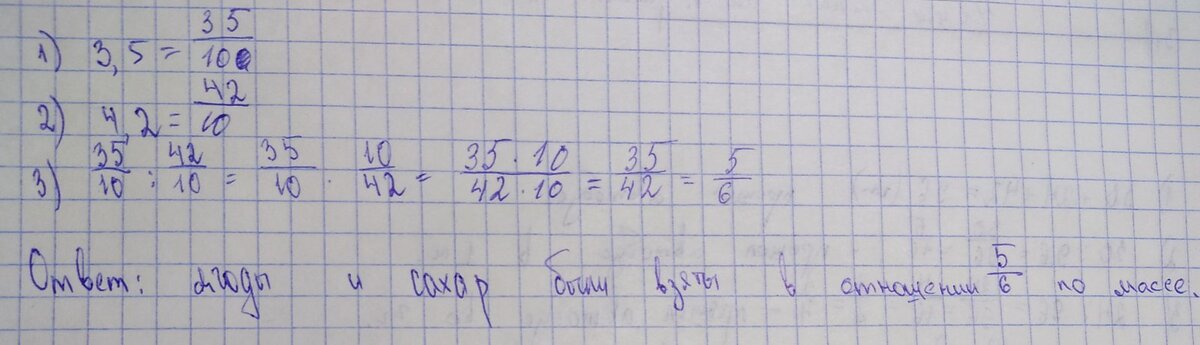 1) 3,5 = 35/10
2) 4,2 = 42/10
3) 35/10 : 42/10 = 35/10 · 10/42 = 35 · 10/42 · 10 = 35/42 = 5/6
Ответ: ягоды и сахар были взяты в отношении 5/6 по массе.